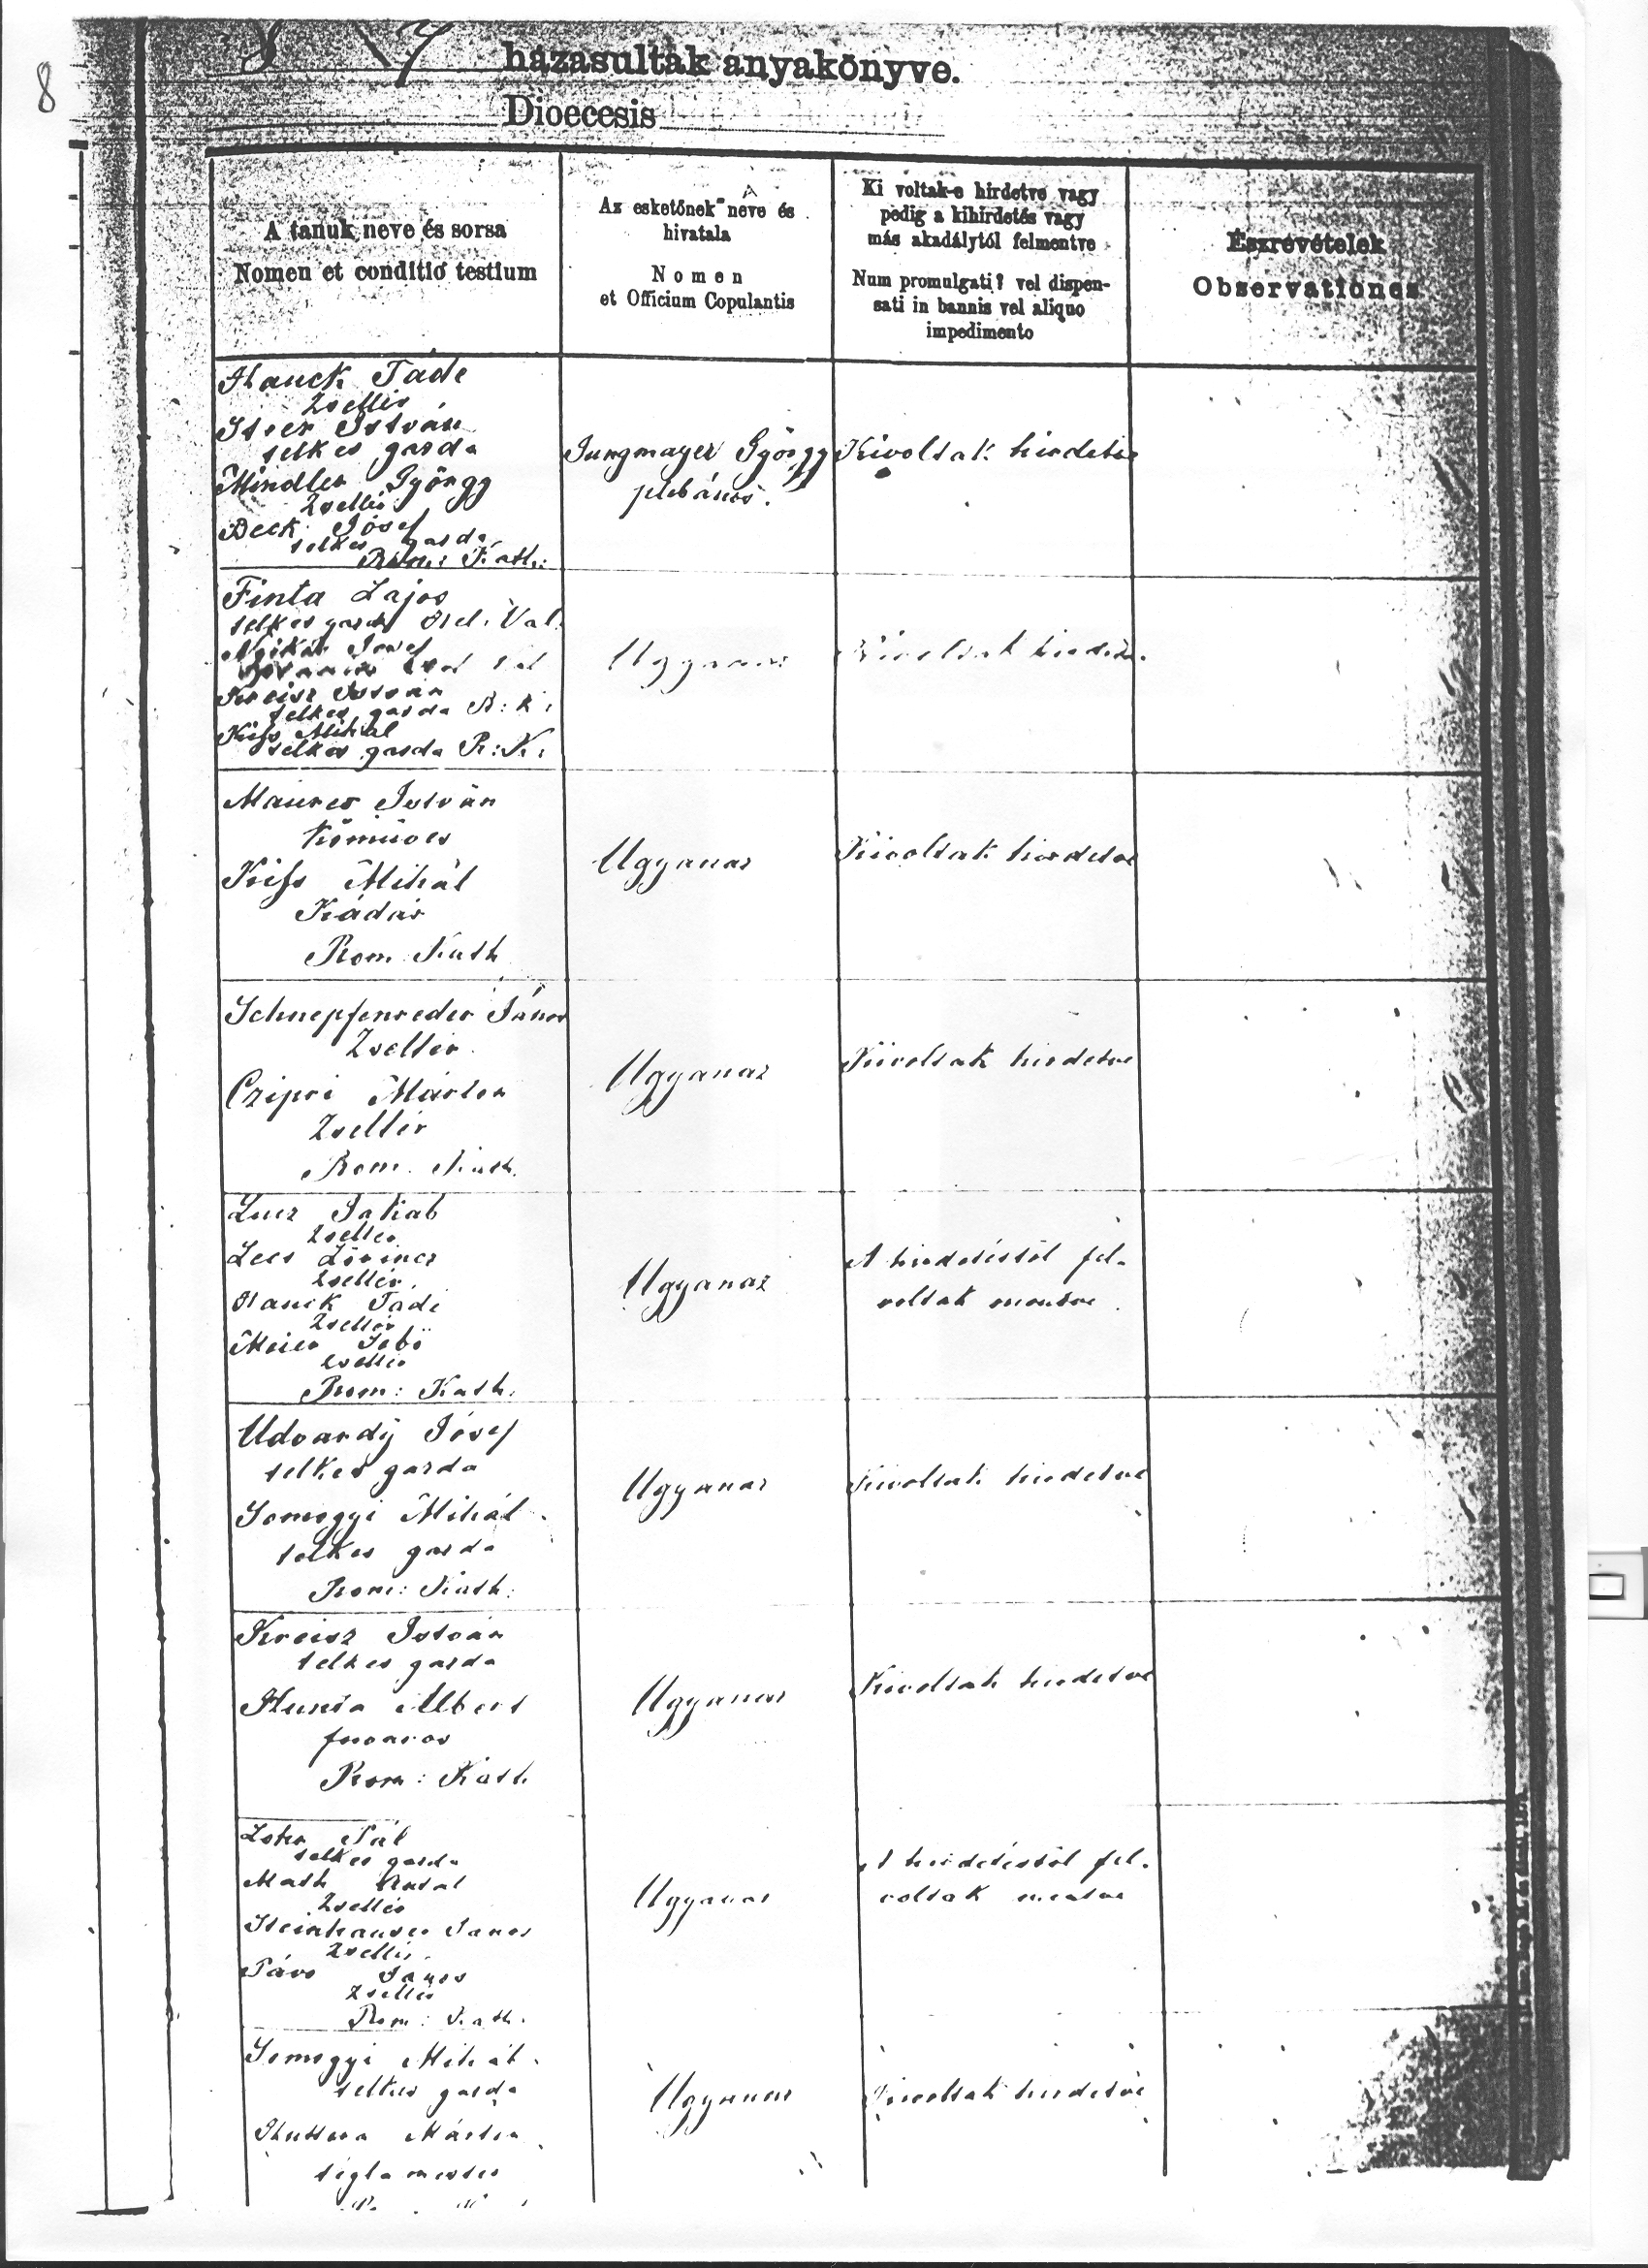 8
házasultak anyakönyve.
Dioecesis
A tanuk neve és sorsa
Nomen et conditio testium
Az esketőnek neve és
hivatala
Nomen
et Officium Copulantis
Ki voltak-e hirdetve vagy
pedig a kihirdetés vagy
más akadálytól felmentve
Num promulgati? vel dispen-
sati in bannis vel aliquo
impedimento
Észrevételek
Observationes
Hauck Tádé
Zsellér
István
telkes gazda
Mindler György
Zsellér
Beck Jósef
telkes gazda
Rom: Kath:
Jungmayer György
plebános.
Kivoltak hirdetve
Finta Lajos
telkes gazda Hel. Val.
Jósef
Kreisz István
telkes gazda R: K:
Kiss Mihál
telkes gazda R: K:
Ugyanaz
Kivoltak hirdetve
Maurer István
Kőműves
Kiss Mihál
Kádár
Rom. Kath
Ugyanaz
Kivoltak hirdetve
Schnepfenreder János
Zsellér
Czipri Márton
Zsellér
Rom. Kath.
Ugyanaz
Kivoltak hirdetve
Lucz Jakab
Zsellér
Lőrincz
Zsellér
Hauck Tádé
Zsellér
Zsellér
Rom: Kath.
Ugyanaz
A hirdetéstől fel-
voltak mentve
Udvardÿ Jósef
telkes gazda
Somogyi Mihál
telkes gazda
Rom: Kath:
Ugyanaz
Kivoltak hirdetve
Kreisz István
telkes gazda
Albert
fuvaros
Rom: Kath.
Ugyanaz
Kivoltak hirdetve
Pál
telkes gazda
Math Antal
Zsellér
Steinhauser János
Zsellér
János
Zsellér
Rom: Kath.
Ugyanaz
A hirdetéstől fel-
voltak mentve
Somogyi Mihál
telkes gazda
Márton
tégla mester
Ugyanaz
Kivoltak hirdetve